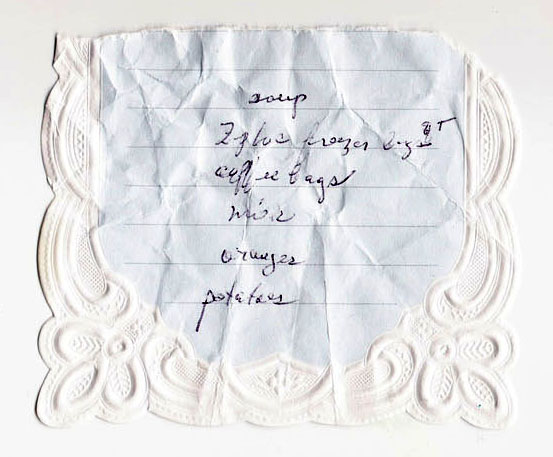 soup
Ziploc frezer bags QT
coffee bags
oranges
potatoes